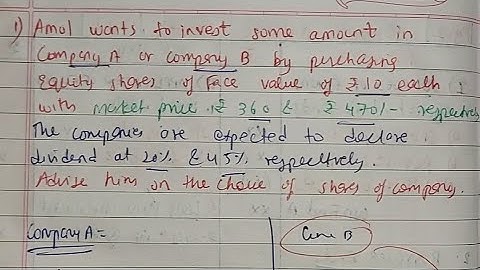 1) Amol wants to invest some amount in
Company A or company B by purchasing
equity shares of Face value of ₹10 each,
with market price ₹ 360 & ₹ 470/- respectively
The companies are expected to declare
dividend at 20% & 45% respectively.
Advise him on the choice of shares of company.
Company A = B